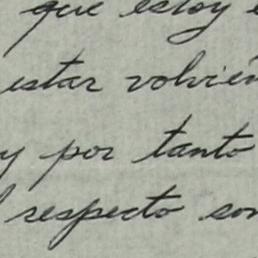 que estoy
estar volvién
y por tanto
respecto son